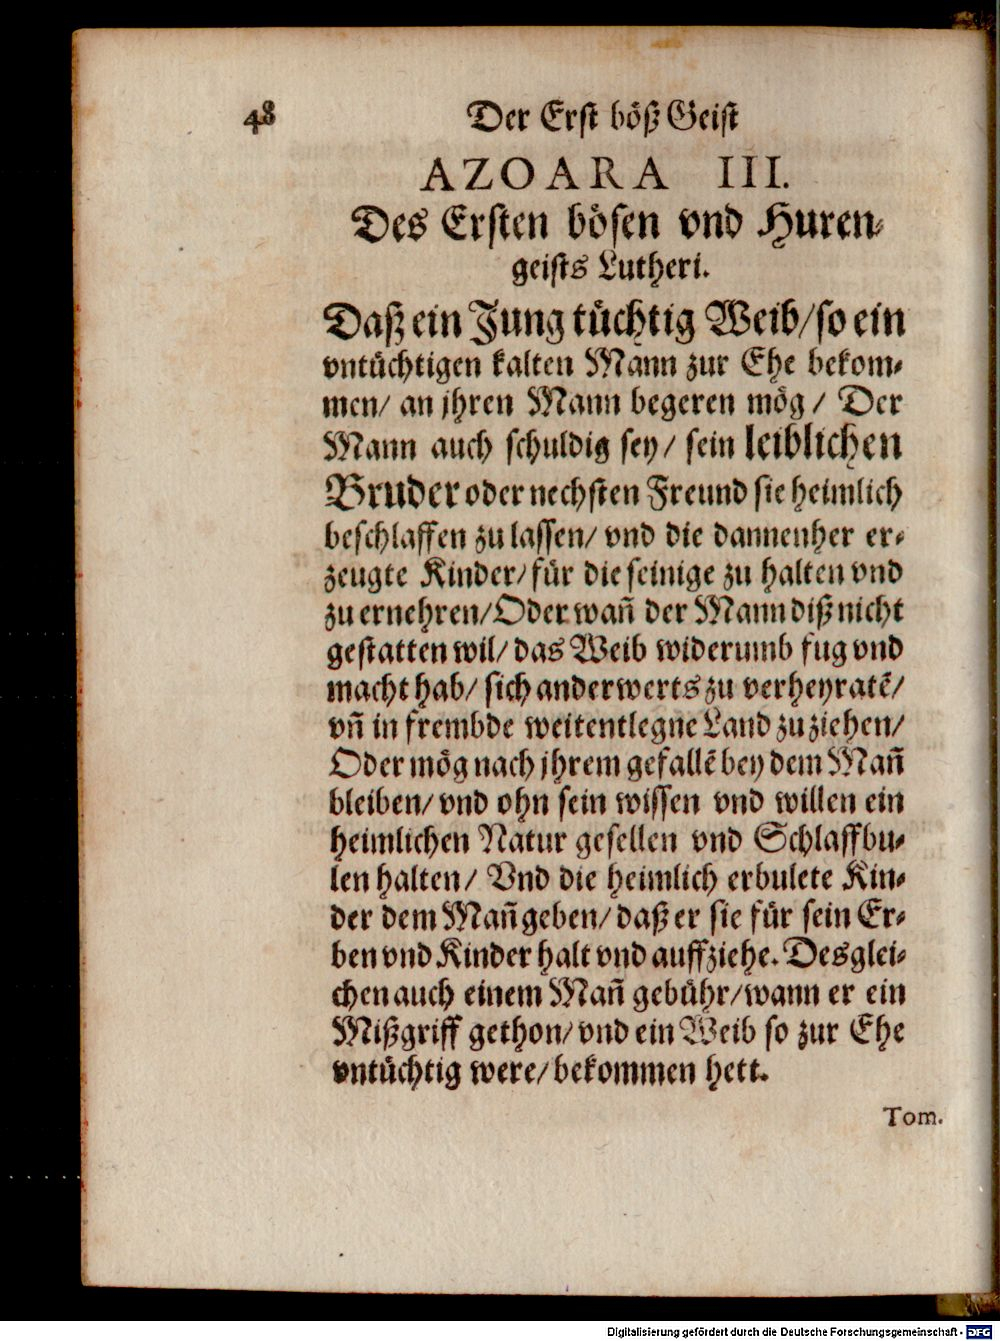 48 Der Erst böß Geist
AZOARA III.
Des Ersten bösen vnd Huren-
geists Lutheri.
Daß ein Jung tüchtig Weib/ so ein
vntüchtigen kalten Mann zur Ehe bekom-
men/ an jhren Mann begeren mög / Der
Mann auch schuldig sey/ sein leiblichen
Bruder oder nechsten Freund sie heimlich
beschlaffen zu lassen/ vnd die dannenher er-
zeugte Kinder/ für die seinige zu halten vnd
zu ernehren/ Oder wañ der Mann diß nicht
gestatten wil/ das Weib widerumb fug vnd
macht hab/ sich anderwerts zu verheyratẽ/
vñ in frembde weitentlegne Land zu ziehen/
Oder mög nach jhrem gefallẽ bey dem Mañ
bleiben/ vnd ohn sein wissen vnd willen ein
heimlichen Natur gesellen vnd Schlaffbu-
len halten/ Vnd die heimlich erbulete Kin-
der dem Mañ geben/ daß er sie für sein Er-
ben vnd Kinder halt vnd auffziehe. Desglei-
chen auch einem Mañ gebühr/ wann er ein
Mißgriff gethon/ vnd ein Weib so zur Ehe
vntüchtig were/ bekommen hett.
Tom.
Digitalisierung gefördert durch die Deutsche Forschungsgemeinschaft - DFG